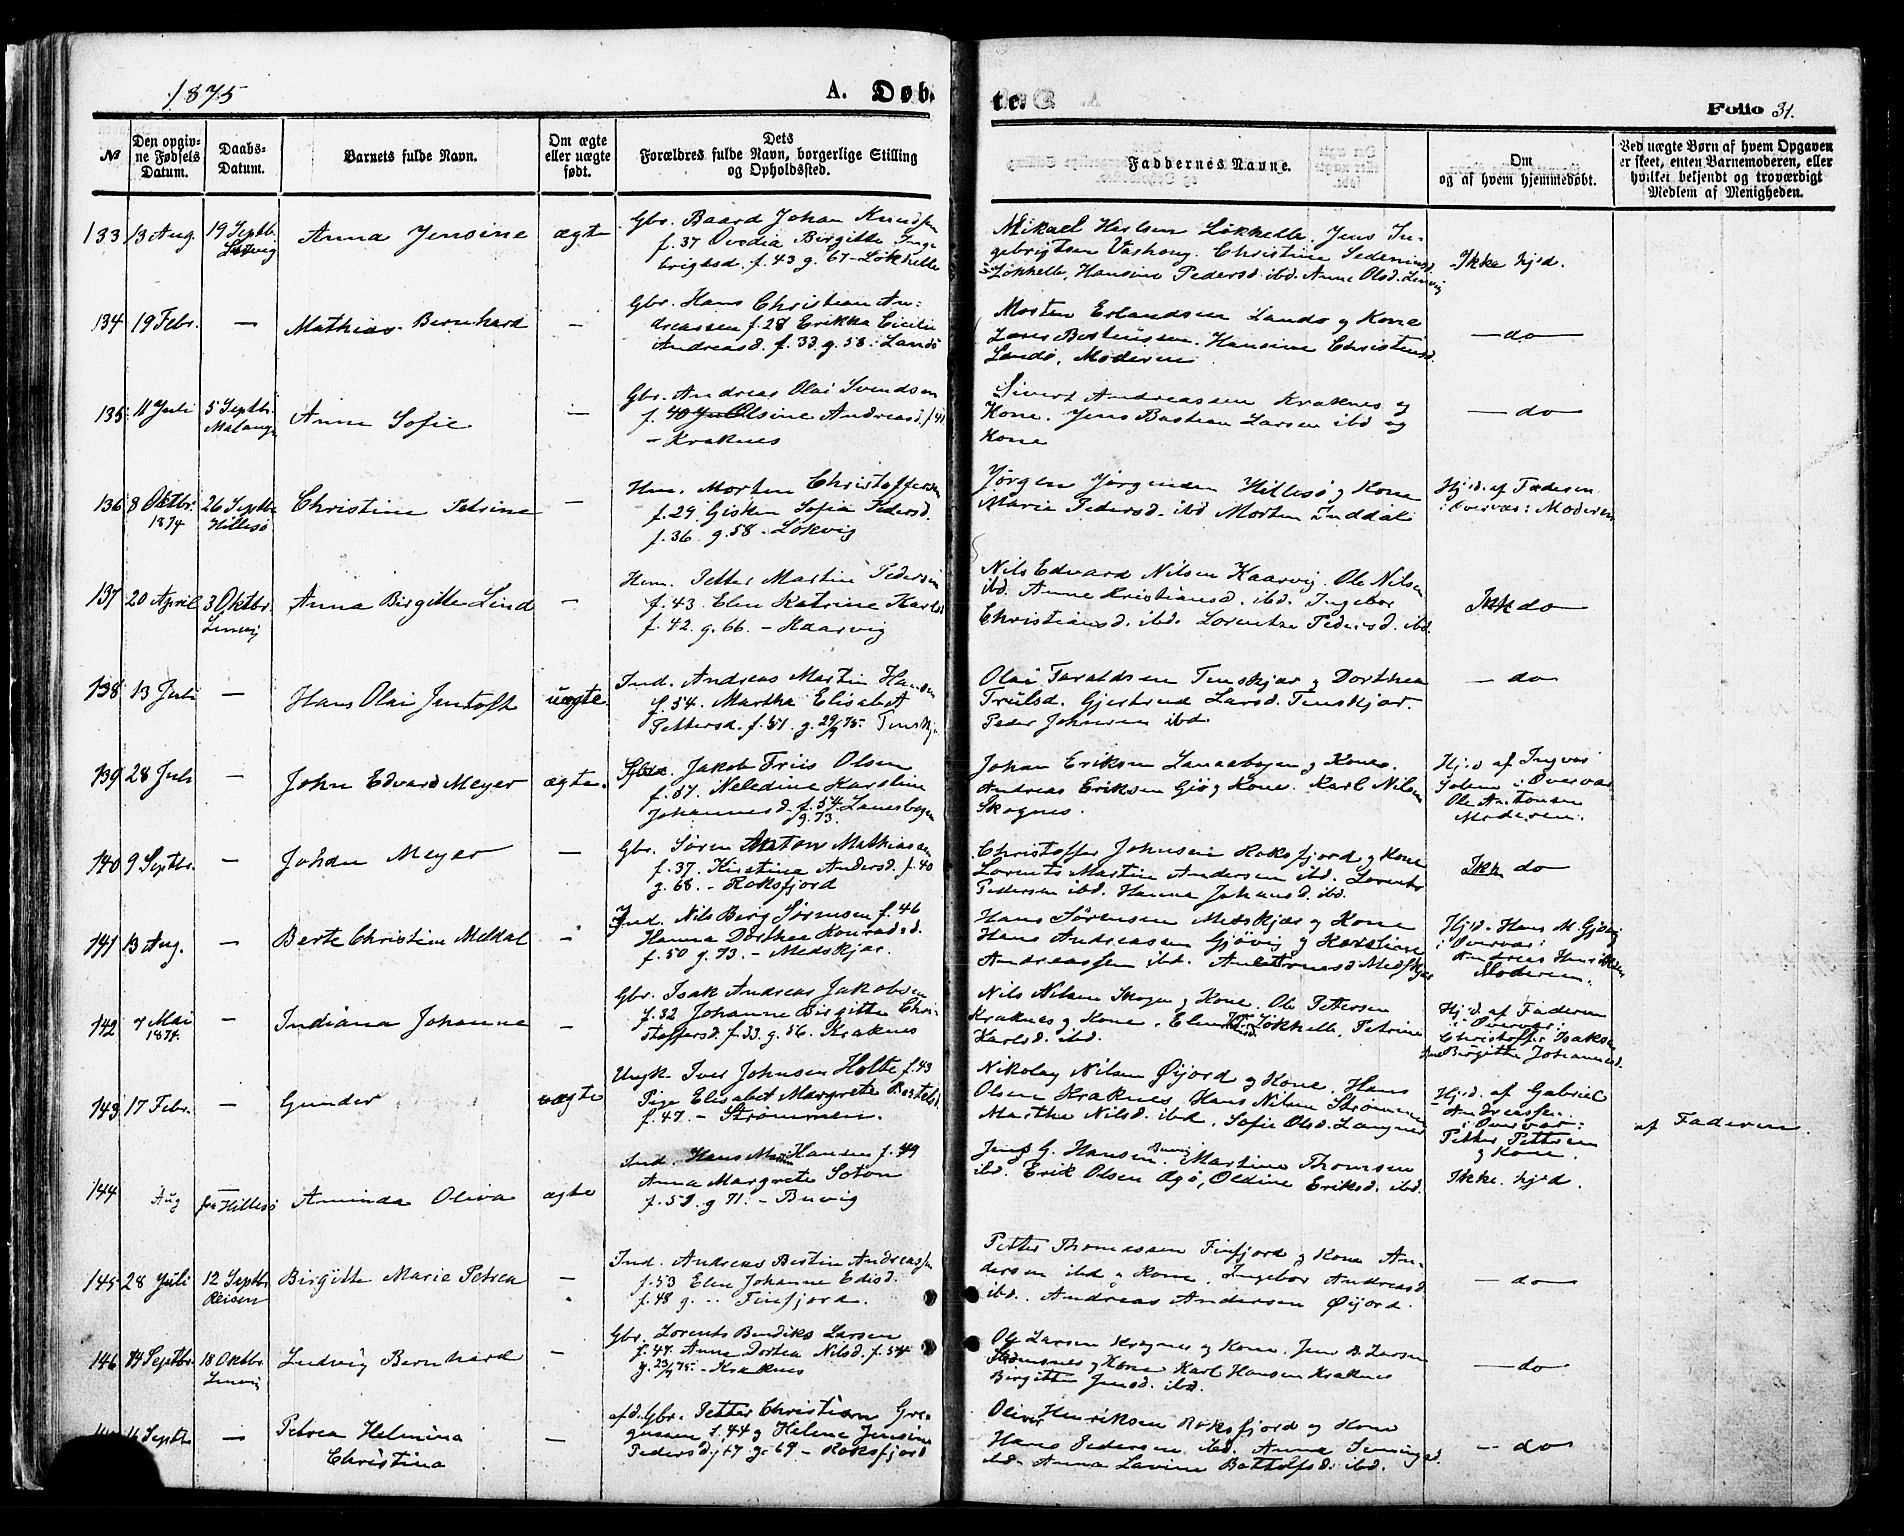 1875
A. Døb-
te.
Folio 31.
No
Den opgiv-
ne Fødsels
Datum.
Daabs-
Datum.
Barnets fulde Navn.
Om ægte
eller uægte
født.
Dets
Forældres fulde Navn, borgerlige Stilling
og Opholdssted.
Faddernes Navne.
Om
og af hvem hjemmedøbt.
Ved uægte Børn af hvem Opgaven
er skeet, enten Barnemoderen, eller
hvilket bekjendt og troværdigt
Medlem af Menigheden.
133 13 Aug. 19 Septbr. Anna Jensine ægte
Gbr. Baard Johan Knudsen
f. 37 Ovedia Birgitte Inge-
brigtsd. f. 43 g. 67 - Løkhelle
Mikael Løkhelle. Jens In-
gebrigtsen Christine
Løkhelle, Hansine Pedersd. ibd. Anne Olsd. Lenvig
Ikke hjd.
134 19 Febr. — Mathias Bernhard —
Gbr. Hans Christian An-
dreassen f. 28 Erikka Cicilie
Andreasd. f. 33 g. 58. Landø
Morten Erlandsen Landø og Kone
Hansine Christensd.
Landø, Moderen
— do —
135 11 Juli 5 Septbr. Malangen Anne Sofie —
Gbr. Andreas Olai Svendsen
f. 40 Olsine Andreasd. f. 41
- Kraknes
Sivert Andreassen Kraknes og
Kone. Jens Bastian Larsen ibd og
Kone
— do —
136 8 Oktbr. 1874 26 Septbr. Hillesø Christine Petrine —
Hm. Morten Christoffersen
f. 29. Gisken Sofia Pedersd.
f. 36. g. 58 - Løkvig
Jørgen Jørgensen Hillesø og Kone
Marie Pedersd. ibd Morten
Hjd. af Faderen
: Overvær: Moderen
137 20 April 3 Oktbr. Lenvig Anna Birgitte Lind —
Hm. Petter Martin Pedersen
f. 43. Elen Katrine Karlsd
f. 42. g. 66. - Kaarvig
Nils Edvard Nilsen Kaarvig. Ole Nilsen
ibd. Anne Kristiansd. ibd. Ingebor
Christiansd. ibd. Lorentze Pedersd. ibd.
Ikke do
138 13 Juli — Hans Olai Jentoft uægte
Ind. Andreas Martin Hansen
f. 54. Martha Elisabet
Pettersd. f. 51. g. 29/9 75.
Olai Taraldsen Tenskjær og Dorthea
Trulsd. Gjertrud Larsd. Tenskjær.
Peder Johnsen ibd.
— do
139 28 Juli — John Edvard Meyer ægte.
Jakob Friis Olsen
f. 51. Neledine Karoline
Johannesd. f. 54. Lanesbogen
g. 73.
Johan Eriksen Lanesbogen og Kone.
Andreas Eriksen og Kone. Karl Nilsen
Skognes.
Hjd af Ingvor
: Overvær
Ole Antonsen
Moderen.
140 9 Septbr. — Johan Meyer —
Gbr. Søren Anton Mathiassen
f. 37. Kirstine Andersd. f. 40
g. 68. - Roksfjord
Christoffer Johnsen Roksfjord og Kone
Lorents Martin Andersen ibd. Lorents
Pedersen ibd. Hanna Johansd. ibd.
Ikke do
141 13 Aug. — Berte Christine —
Ind. Nils Berg Sørensen f. 46
Hanna Dorthea Konradsd.
f. 50 g. 73. - Medskjær.
Hans Sørensen Medskjær og Kone
Hans Andreassen Gjøvig og Karoline
Andreassen ibd.
Hjd. Hans M. Gjøvig
: Overvær:
Andreas
Moderen.
142 7 Mai 1874. — Indiana Johanne —
Gbr. Isak Andreas Jakobsen
f. 32 Johanne Birgitte Chri-
stoffersd. f. 33. g. 56. Kraknes
Nils Nilsen Skogen og Kone. Ole Pettersen
Kraknes og Kone. Elen Løkhelle, Petrine
Karlsd. ibd.
Hjd. af Faderen
: Overvær:
Christoffer Isaksen
Birgitte Johannesd.
143 17 Febr. — Gunder uægte
Ungk. Iver Johnsen Holte f. 43
Pige Elisabet Margrete
f. 47. - Strømmen.
Nikolay Nilsen Øijord og Kone. Hans
Olsen Kraknes, Hans Nilsen Strømmen
Martha Nilsd. ibd, Sofie Olsd. Langnes
Hjd. af Gabriel
Andreassen.
: Overvær:
Petter Pettersen
og Kone.
af Faderen
144 Aug fra Hillesø Aminda Oliva ægte
Ind. Hans Hansen f. 49
Anna Margrete
f. 52. g 71. - Buvig
Jens G. Hansen Buvig. Martine Thomsen
ibd. Erik Olsen, Oldine Eriksd. ibd.
Ikke hjd.
145 28 Juli 12 Septbr. Reisen Birgitte Marie Petrea —
Ind. Andreas Bertin Andreassen
f. 53 Elen Johanne Edisd.
f. 48 g. - Finfjord.
Petter Thomassen Finfjord og Kone An-
dersen ibd og Kone. Ingebor Andreasd.
ibd. Andreas Andersen Øijord.
— do —
146 14 Septbr. 18 Oktbr. Lenvig Ludvig Bernhard —
Gbr. Lorents Bendiks Larsen
f. 47. Anne Dortea Nilsd. f. 54
- Kraknes
Ole Larsen og Kone. Jens B. Larsen
og Kone Karl Hansen Kraknes
Birgitte Jensd. ibd.
— do
Septbr. — Petrea Helmina
Christina —
afd. Gbr. Petter Christian Gre-
gussen f. 44 og Helene Jensine
Pedersd. f. 47 g. 69 - Roksfjord
Oliver Henriksen Roksfjord og Kone
Hans Pedersen ibd. Anne
ibd. Anna Lavine Bottolfsd. ibd.
— do —